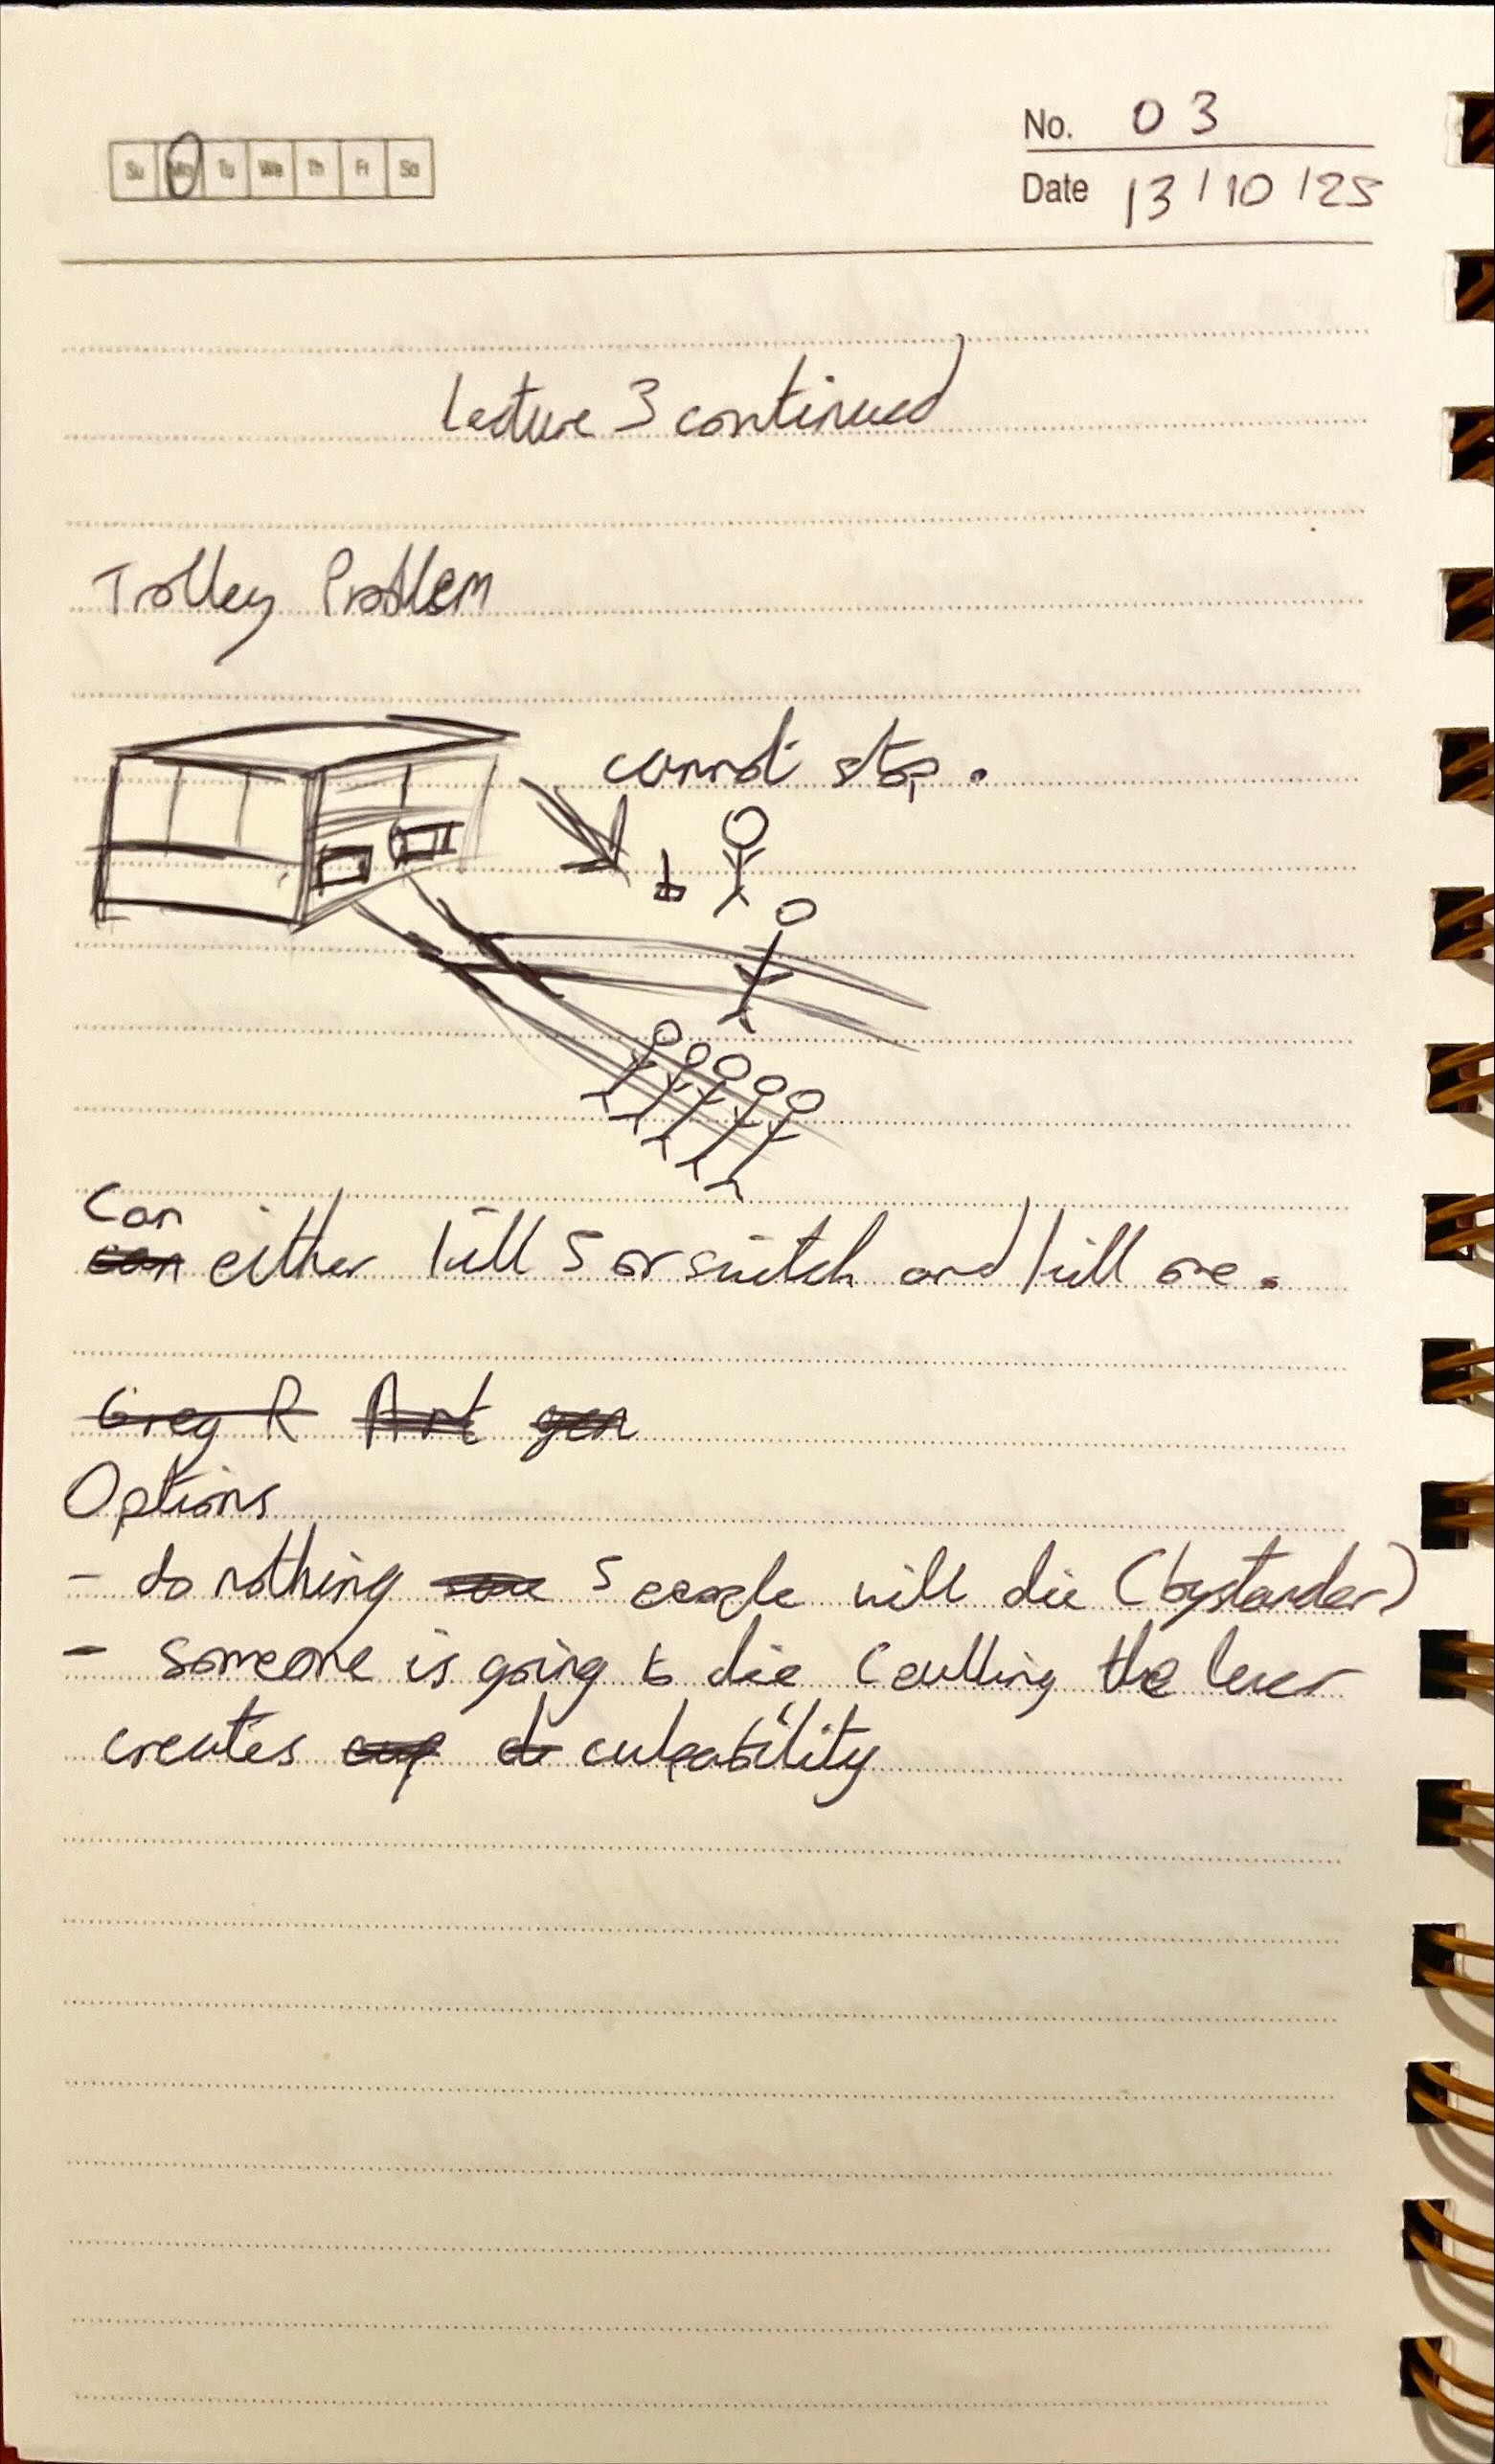 Su Mo Tu We Th Fr Sa
No. 03
Date 13/10/25
Lecture 3 continued
Trolley Problem
cannot stop.
Can
can either kill 5 or switch and kill one.
Greg R Art gen
Options
- do nothing 5 people will die (bystander)
- someone is going to die (pulling the lever
creates culpability